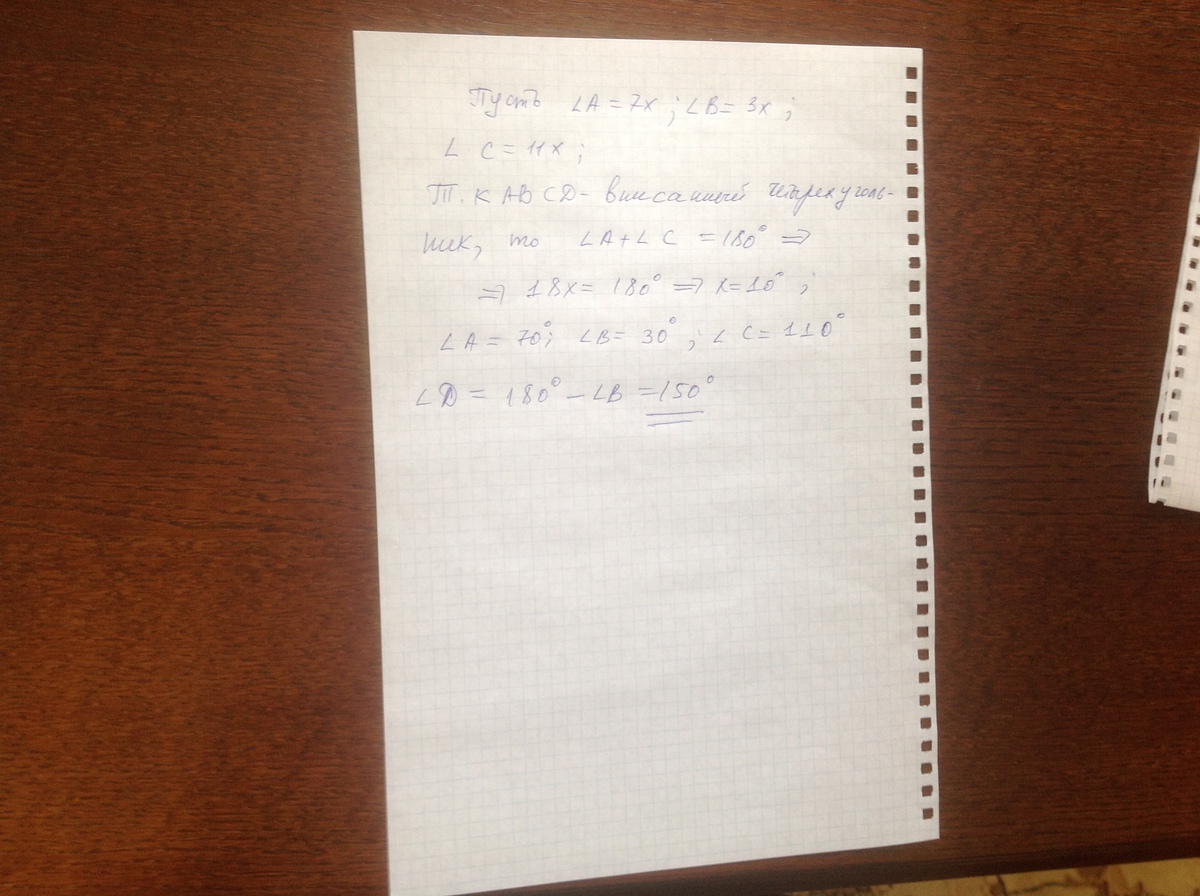 Пусть ∠A = 7x ; ∠B = 3x ;
∠ C = 11x ;
Т. к ABCD - вписанный четырехуголь-
ник, то ∠A + ∠ C = 180° ⇒
⇒ 18x = 180° ⇒ x = 10° ;
∠A = 70°; ∠B = 30° ; ∠ C = 110°
∠D = 180° - ∠B = 150°